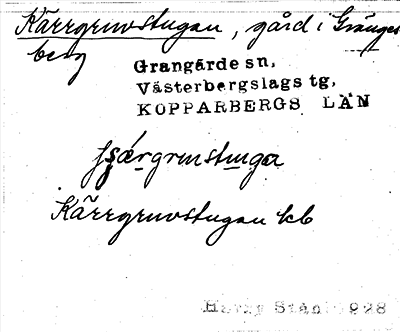 Kärrgruvstugan, gård i Gränges
berg
Grangärde sn,
Västerbergslags tg,
KOPPARBERGS LÄN
Kärrgruvstugan kb
Harry Ståhl 1928